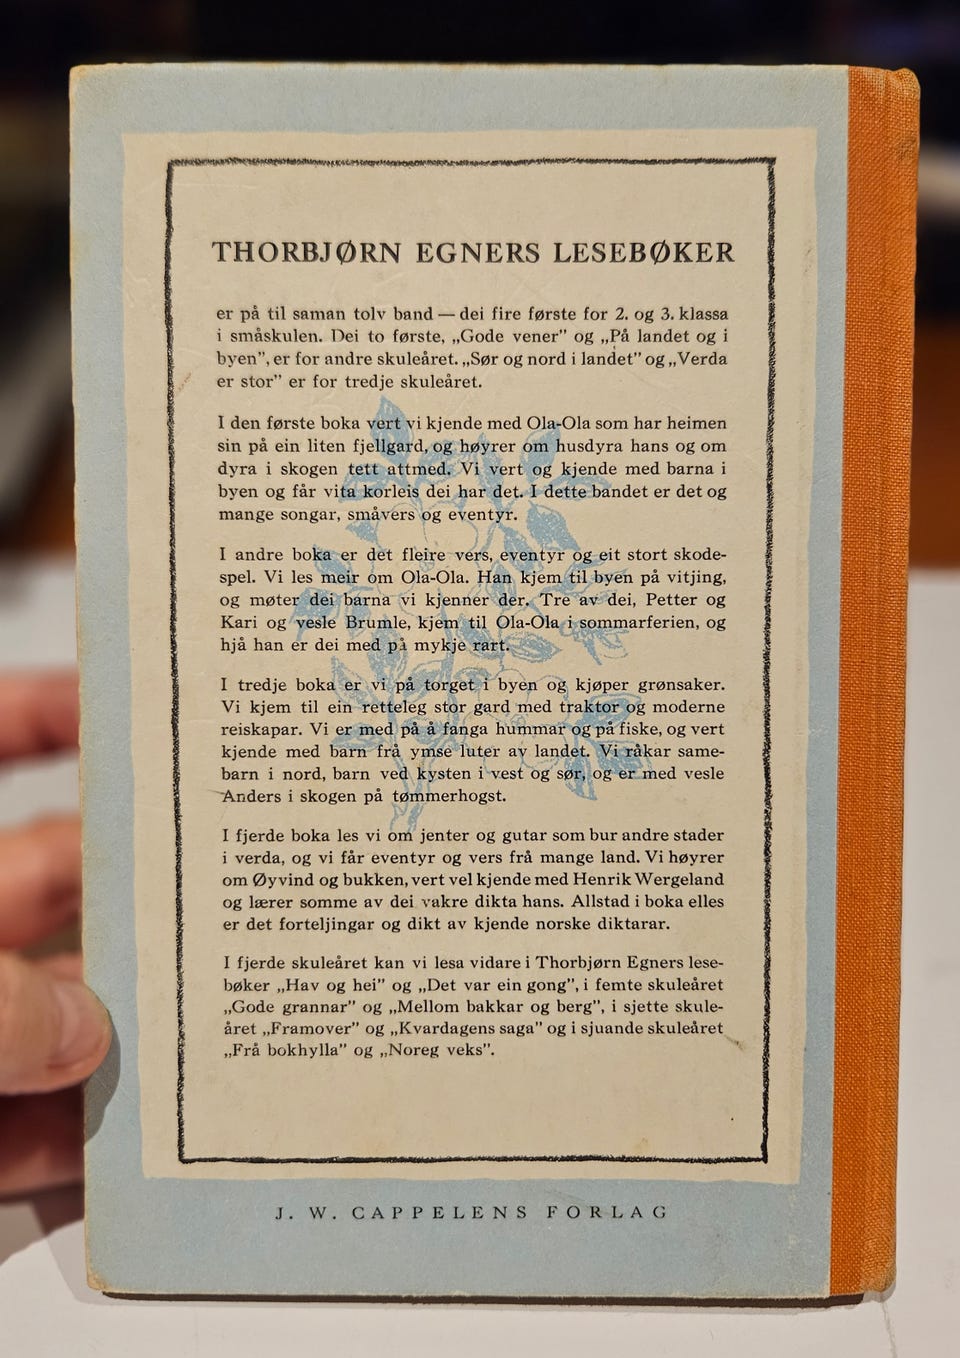 THORBJØRN EGNERS LESEBØKER
er på til saman tolv band — dei fire første for 2. og 3. klassa
i småskulen. Dei to første, „Gode vener” og „På landet og i
byen”, er for andre skuleåret. „Sør og nord i landet” og „Verda
er stor” er for tredje skuleåret.
I den første boka vert vi kjende med Ola-Ola som har heimen
sin på ein liten fjellgard, og høyrer om husdyra hans og om
dyra i skogen tett attmed. Vi vert og kjende med barna i
byen og får vita korleis dei har det. I dette bandet er det og
mange songar, småvers og eventyr.
I andre boka er det fleire vers, eventyr og eit stort skode-
spel. Vi les meir om Ola-Ola. Han kjem til byen på vitjing,
og møter dei barna vi kjenner der. Tre av dei, Petter og
Kari og vesle Brumle, kjem til Ola-Ola i sommarferien, og
hjå han er dei med på mykje rart.
I tredje boka er vi på torget i byen og kjøper grønsaker.
Vi kjem til ein retteleg stor gard med traktor og moderne
reiskapar. Vi er med på å fanga hummar og på fiske, og vert
kjende med barn frå ymse luter av landet. Vi råkar same-
barn i nord, barn ved kysten i vest og sør, og er med vesle
Anders i skogen på tømmerhogst.
I fjerde boka les vi om jenter og gutar som bur andre stader
i verda, og vi får eventyr og vers frå mange land. Vi høyrer
om Øyvind og bukken, vert vel kjende med Henrik Wergeland
og lærer somme av dei vakre dikta hans. Allstad i boka elles
er det forteljingar og dikt av kjende norske diktarar.
I fjerde skuleåret kan vi lesa vidare i Thorbjørn Egners lese-
bøker „Hav og hei” og „Det var ein gong”, i femte skuleåret
„Gode grannar” og „Mellom bakkar og berg”, i sjette skule-
året „Framover” og „Kvardagens saga” og i sjuande skuleåret
„Frå bokhylla” og „Noreg veks”.
J. W. CAPPELENS FORLAG